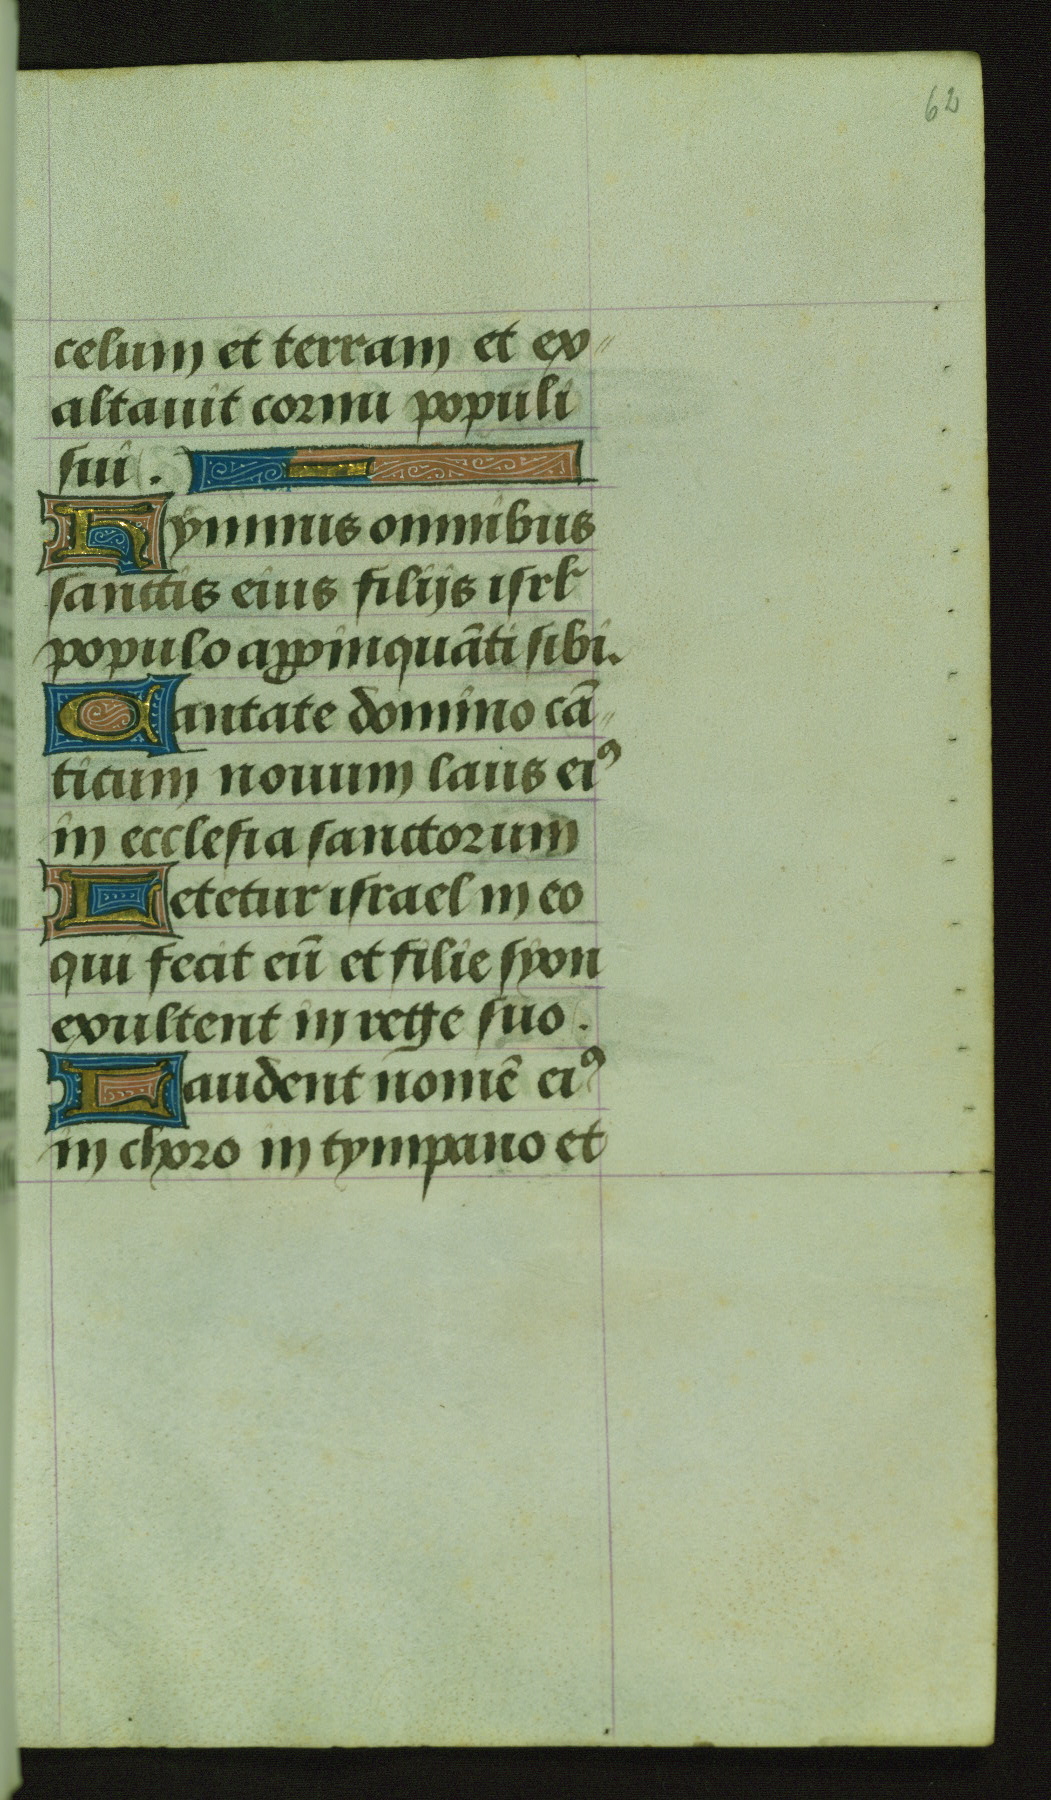 62
celum et terram et ex//
altauit cornu populi
sui.
Hymnus omnibus
sanctis eius filijs isrl
populo appinquãti sibi.
Cantate domino cã//
ticum nouum laus eiꝰ
in ecclesia sanctorum
Letetur israel in eo
qui fecit eũ et filie syon
exultent in rege suo.
Laudent nomẽ eiꝰ
in choro in tympano et